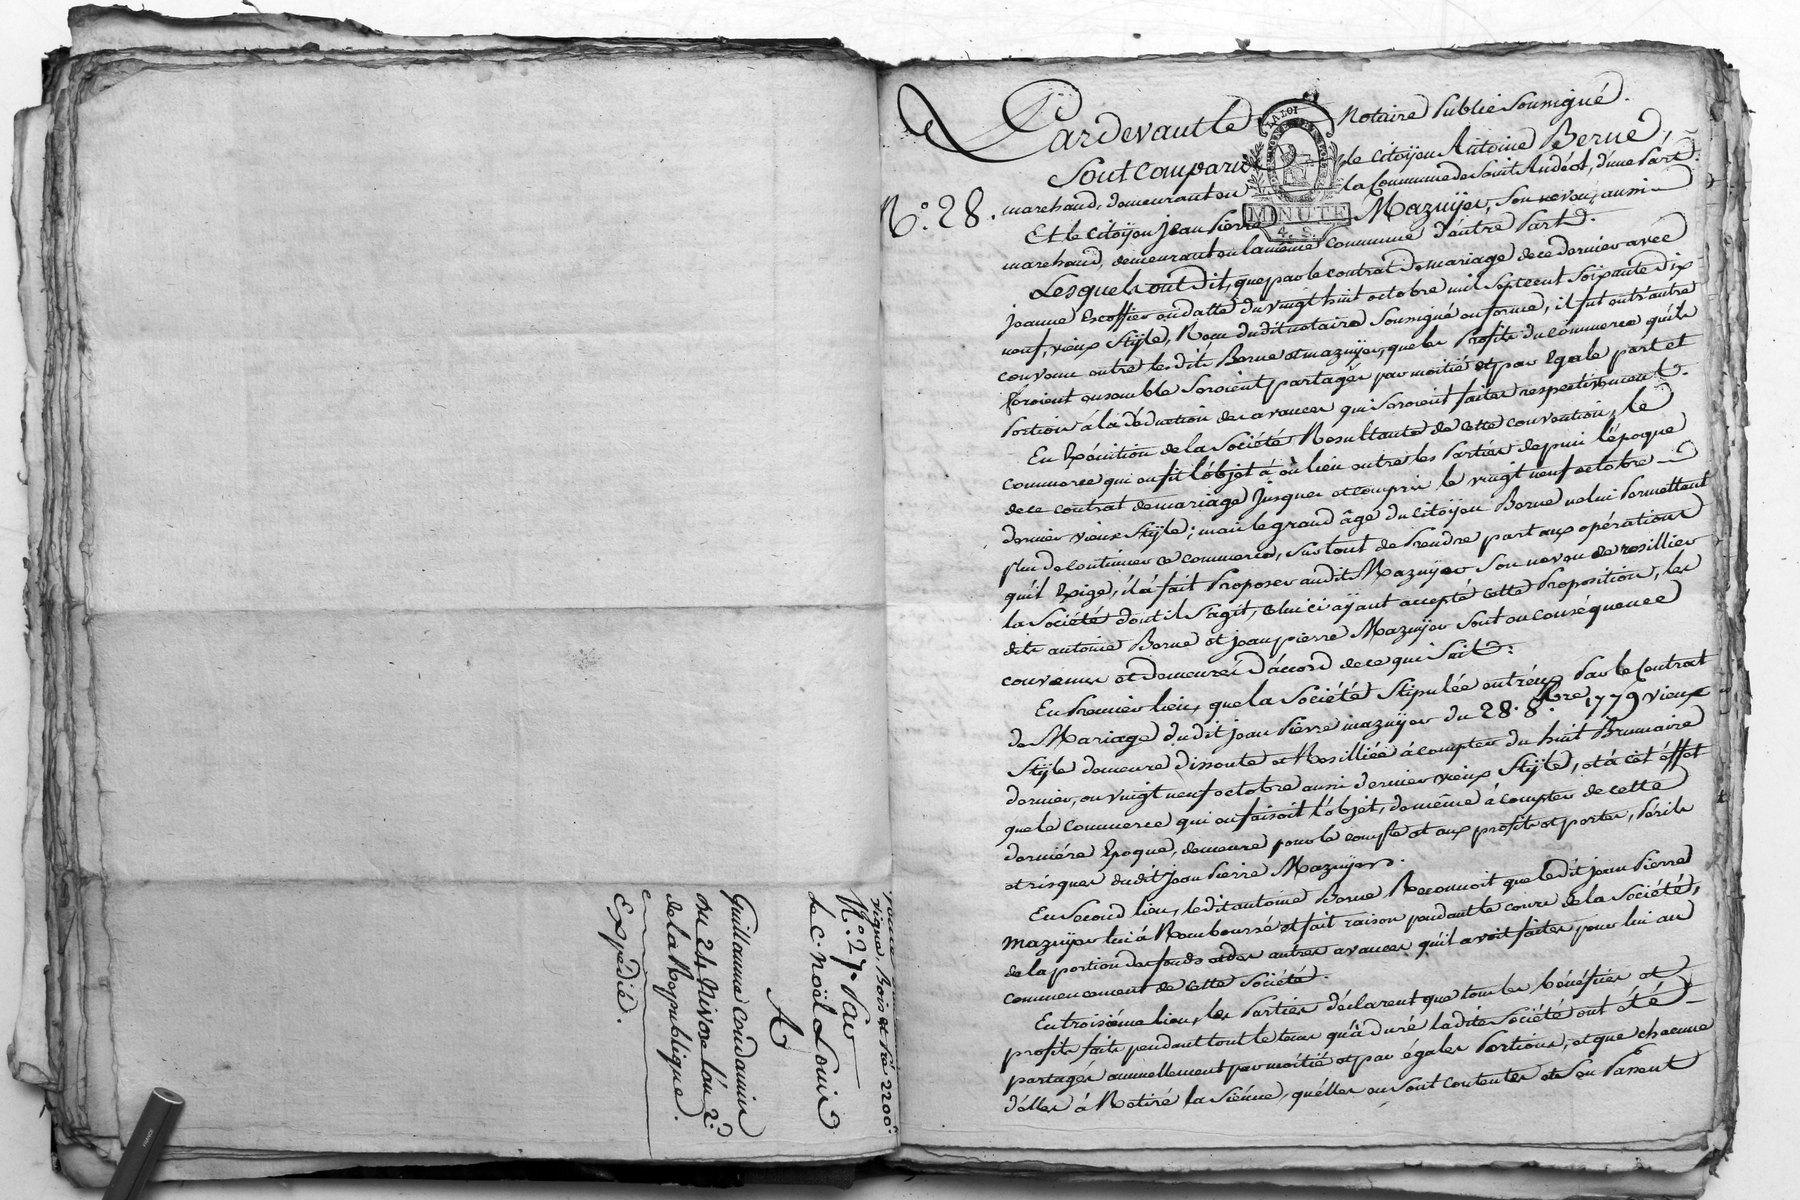 vigne, Bois et Pré 2200#
N.° 27. Par
Le C. Noël Louis
A
Guillaume Condamin
du 24 Nivose l'an 2.d
de la Republique.
Expédié.
Pardevant le Notaire Public Soussigné.
LA LOI
MINUTE
4. S.
Sont comparu le Citoÿen Antoine Berne,
N.° 28. marchand, demeurant en la Commune de Saint Andéol, d'une Part.
Et le Citoÿen Jean Pierre Mazuÿer, Son neveu, aussi
marchand, demeurant en la même commune d'autre Part.
Lesquels ont Dit, que par le contrat de mariage de ce dernier avec
Jeanne Escoffier en datte du vingt huit octobre mil Sept cent Soixante Dix
neuf, vieux Stÿle, Reçu du dit notaire Soussigné en forme, il fut entr'autre
convenu entre lesdits Berne et mazuÿer, que les Profits du commerce qu'ils
feroient ensemble Seroient partagés par moitié et par Egale part et
Portion à la déduction des avances qui Seroient faites respectivement.
En Exécution de la Société Resultante de cette convention, le
commerce qui en fit l'objet à eû lieu entre les Parties depuis l'époque
de ce contrat de mariage Jusques et compris le vingt neuf octobre
dernier vieux Stÿle; mais le grand âge du Citoÿen Berne ne lui Permettant
plus de continuer ce commerce, Surtout de Prendre part aux opérations
qu'il Exige, il à fait Proposer audit Mazuÿer Son neveu de résillier
la Société dont il S'agit, celui ci aÿant accepté cette Proposition, les
dits antoine Berne et Jean pierre Mazuÿer Sont en conséquence
convenus et demeurés D'accord de ce qui Suit:
En Premier lieu, que la Société Stipulée entr'eux Par le Contrat
de Mariage du dit Jean Pierre mazuÿer du 28. 8.bre 1779 vieux
Stÿle demeure dissoute et Resilliée à compter du huit Brumaire
dernier, ou vingt neuf octobre aussi dernier vieux Stÿle, et à cet éffet
que le Commerce qui en faisoit l'objet, de même à compter de cette
derniére Epoque, demeure pour le compte et aux profits et pertes, Périls
et risques dudit Jean Pierre Mazuÿer.
En Second lieu, ledit antoine Berne Reconnoit que ledit Jean Pierre
Mazuÿer lui à Remboursé et fait raison pendant le cours de la Société,
de la portion des fonds et des autres avances qu'il avoit faites pour lui au
commencement de cette Société.
En troisiéme lieu, les Parties déclarent que tous les bénéfices et
profits faits pendant tout le tems qu'à duré ladite Société ont été
partagés annuellement par moitié et par égales Portions, et que chacune
d'elles à Retiré la Siénne, qu'elles en Sont contentes et S'en Passent